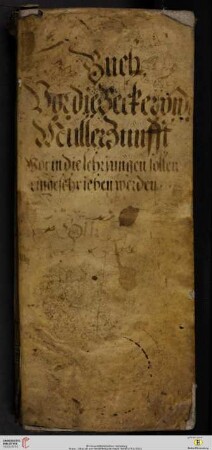 Buch
Vor die Becker und
Müller Zunfft
Worin die lehrjungen sollen
eingeschrieben werden